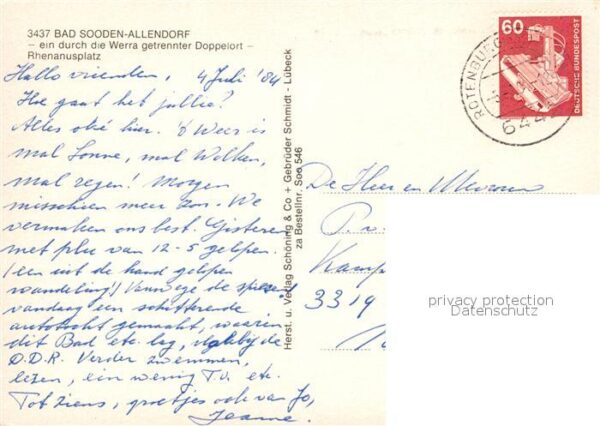 3437 BAD SOODEN-ALLENDORF
– ein durch die Werra getrennter Doppelort –
Rhenanusplatz
Hallo vrienden, 4 Juli '84
Hoe gaat het jullie?
Alles oké hier. 't Weer is
mal Sonne, mal Wolken,
mal regen! Morgen
misschien meer zon. We
vermaken ons best. Gisteren
met plu van 12-5 gelopen.
(een uit de hand gelopen
wandeling!) Vanwege de
vandaag een schitterende
autotocht gemaakt, waarin
dit Bad etc. lag, vlakbij de
D.D.R. Verder zwemmen,
lezen, een weinig T.V. etc.
Tot ziens, groetjes ook van Jo,
Jeanne.
Herst. u. Verlag Schöning & Co + Gebrüder Schmidt - Lübeck
za Bestellnr. Soo 546
60
DEUTSCHE BUNDESPOST
ROTENBURG
644
De Heer en Mevrouw
P. v.
Kamp
3319
privacy protection
Datenschutz